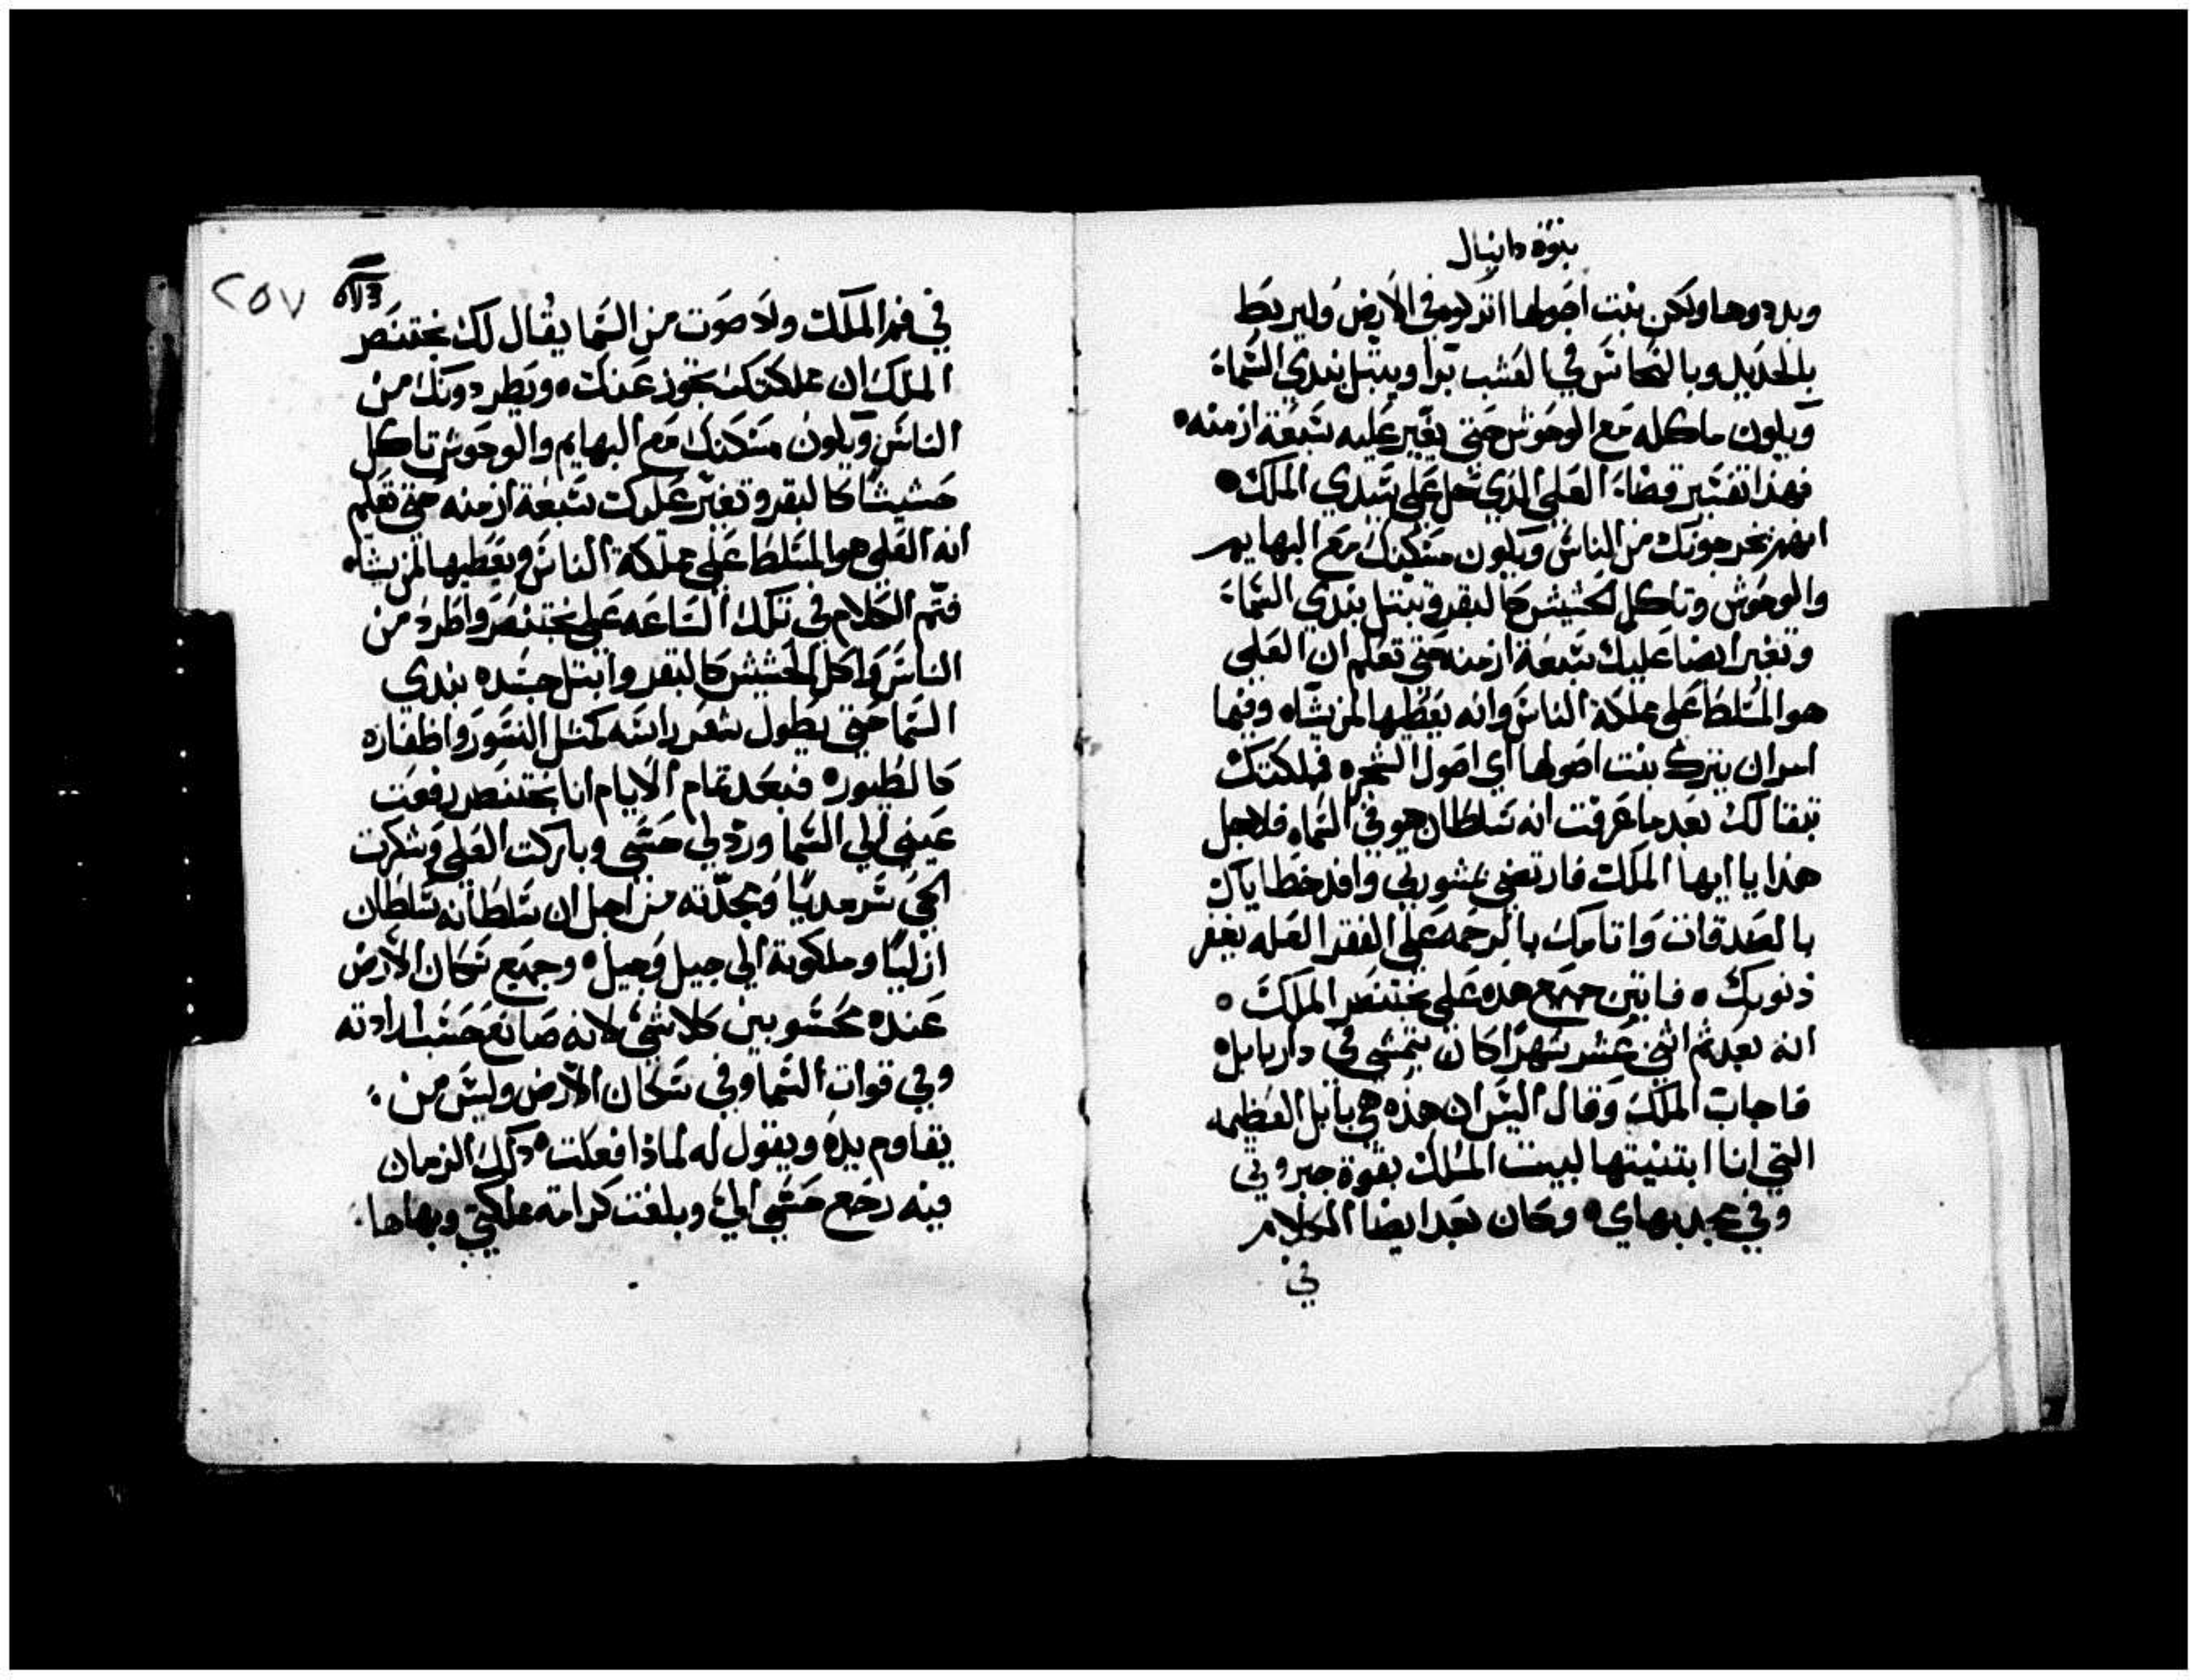 نبوة دانيال
وبددوها ولكن بنت اصولها اتركوه في الارض وليربط
بالحديد وبالنحاس في العشب برا ويبتل بندي السماء
ويكون ماكله مع الوحوش حتي يغير عليه سبعة ازمنه
فهذا تفسير قضاء العلي الذي حل علي سيدي الملك
انهم يخرجونك من الناس ويكون مسكنك مع البهايم
والوحوش وتاكل الحشيش كالبقر وتبتل بندي السماء
وتغير ايضا عليك سبعة ازمنه حتي تعلم ان العلي
هو المسلط علي مملكة الناس وانه يعطيها لمن يشاء وفيما
امر ان يترك بنت اصولها اي اصول الشجره فملكتك
تبقا لك بعد ما عرفت انه سلطان هو في السماء فلاجل
هذا يا ايها الملك فارتضي بمشورتي وافد خطاياك
بالصدقات واثامك بالرحمه علي الفقرا لعله يغفر
ذنوبك فاتين جميع هذه علي بختنصر الملك
انه بعد ثم اثني عشر شهرا كان يتمشي في دار بابل
فاجاب الملك وقال اليس ان هذه هي بابل العظيمه
التي انا ابتنيتها لبيت الملك بقوة جبروتي
وفي مجد بهاي وكان بعد ايضا الكلام
في
٢٥٧
في فم الملك ولا صوت من السما يقال لك بختنصر
الملك ان مملكتك تجوز عنك ويطردونك من
الناس ويكون مسكنك مع البهايم والوحوش تاكل
حشيشا كالبقر وتغير عليك سبعة ازمنه حتي تعلم
انه العلي هو المسلط علي مملكة الناس ويعطيها لمن يشاء
فتم الكلام في تلك الساعه علي بختنصر واطرد من
الناس واكل الحشيش كالبقر وابتل جسده بندي
السما حتي يطول شعر راسه كمثل النسور واظفاره
كالطيور فبعد تمام الايام انا بختنصر رفعت
عيني الي السما ورد لي حسي وباركت العلي وشكرت
الحي سرمديا ومجدته من اجل ان سلطانه سلطان
ازليا وملكوته الي جيل وجيل وجميع سكان الارض
عنده محسوبين كلاشي لانه صانع حسب ارادته
وفي قوات السما وفي سكان الارض وليس من
يقاوم يده ويقول له لماذا فعلت ذلك الزمان
فيه رجع حسي الي وبلغت كرامة مملكتي وبهاها